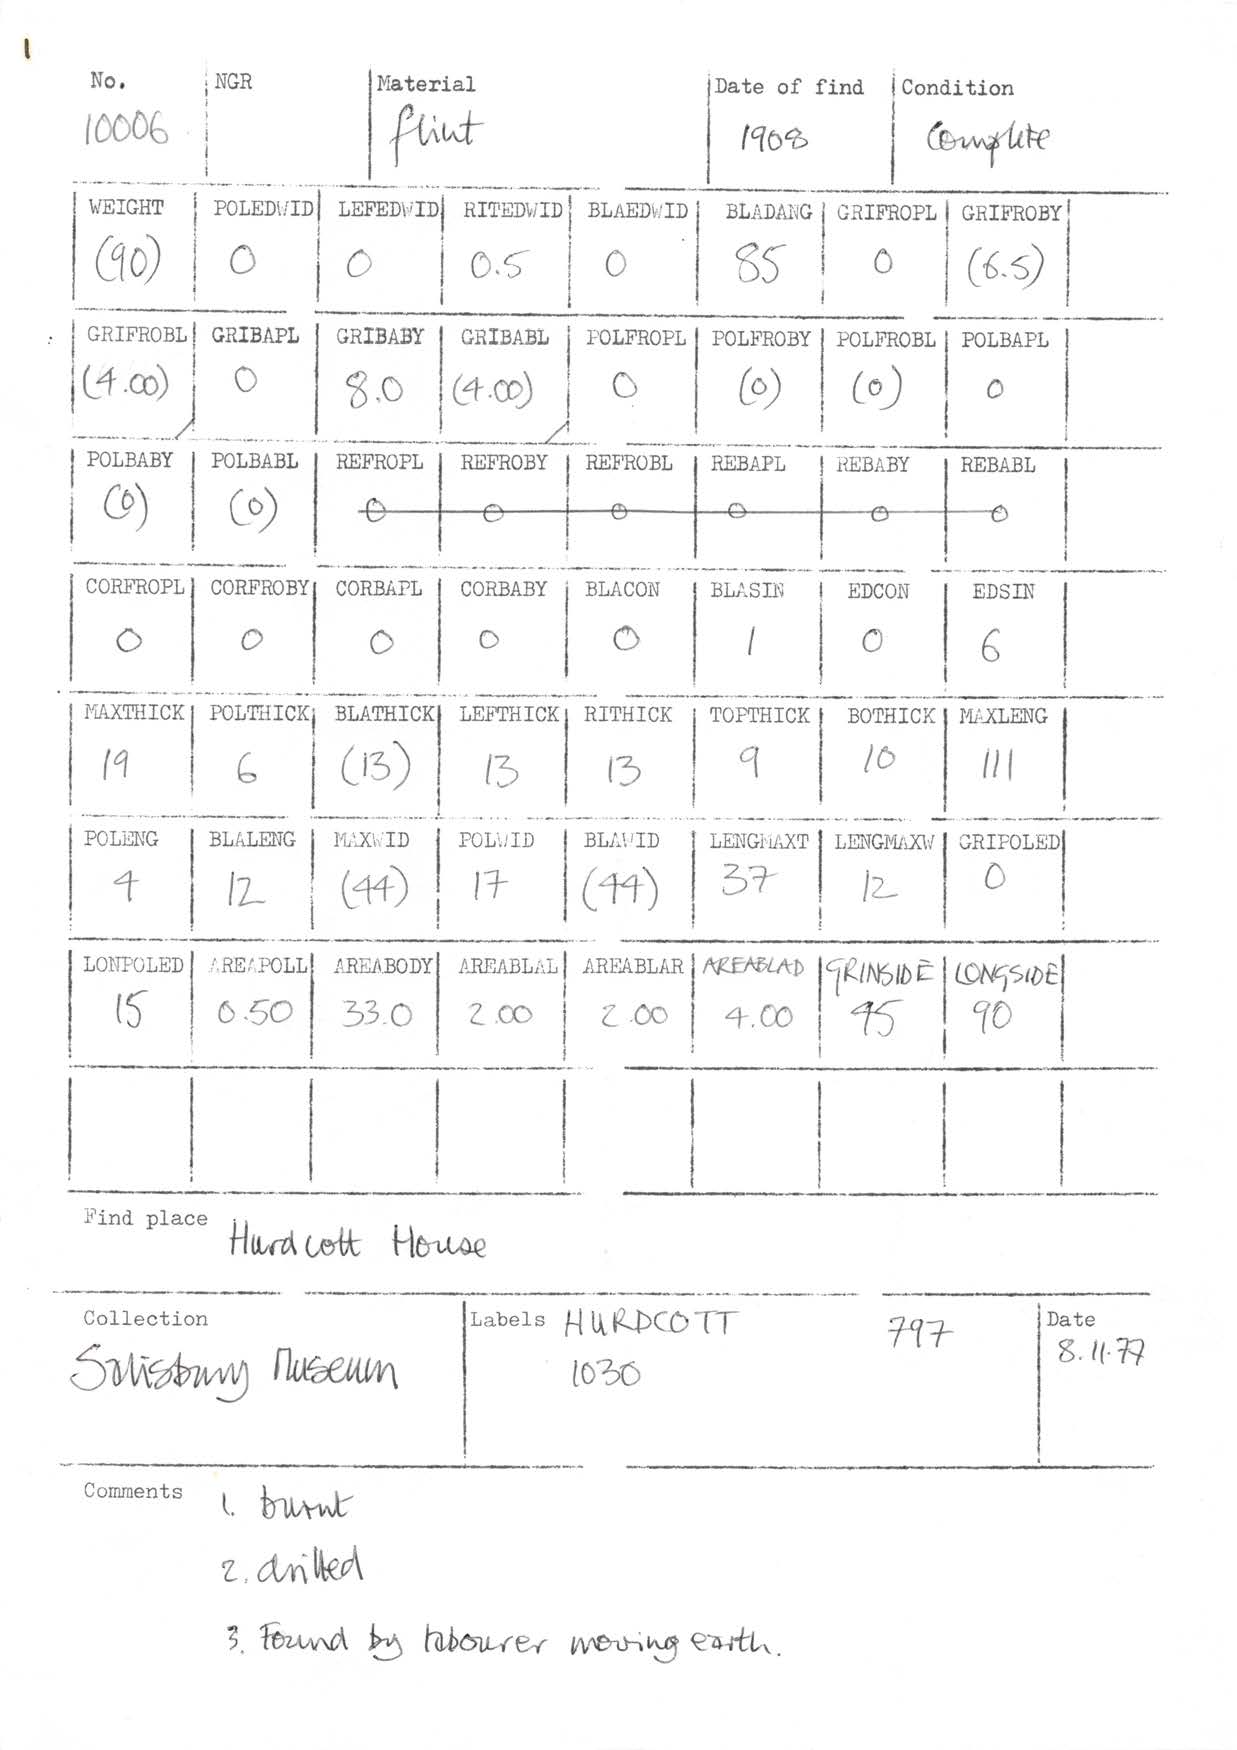 1
No. NGR Material Date of find Condition
10006 flint 1908 Complete
WEIGHT POLEDWID LEFEDWID RITEDWID BLAEDWID BLADANG GRIFROPL GRIFROBY
(90) 0 0 0.5 0 85 0 (6.5)
GRIFROBL GRIBAPL GRIBABY GRIBABL POLFROPL POLFROBY POLFROBL POLBAPL
(4.00) 0 8.0 (4.00) 0 (0) (0) 0
POLBABY POLBABL REFROPL REFROBY REFROBL REBAPL REBABY REBABL
(0) (0) 0 0 0 0 0 0
CORFROPL CORFROBY CORBAPL CORBABY BLACON BLASIN EDCON EDSIN
0 0 0 0 0 1 0 6
MAXTHICK POLTHICK BLATHICK LEFTHICK RITHICK TOPTHICK BOTHICK MAXLENG
19 6 (13) 13 13 9 10 111
POLENG BLALENG MAXWID POLWID BLAWID LENGMAXT LENGMAXW GRIPOLED
4 12 (44) 17 (44) 37 12 0
LONPOLED AREAPOLL AREABODY AREABLAL AREABLAR AREABLAD GRINSIDE LONGSIDE
15 0.50 33.0 2.00 2.00 4.00 45 90
Find place Hurdcott House
Collection Labels HURDCOTT 797 Date
Salisbury Museum 1030 8.11.77
Comments 1. burnt
2. drilled
3. Found by labourer moving earth.